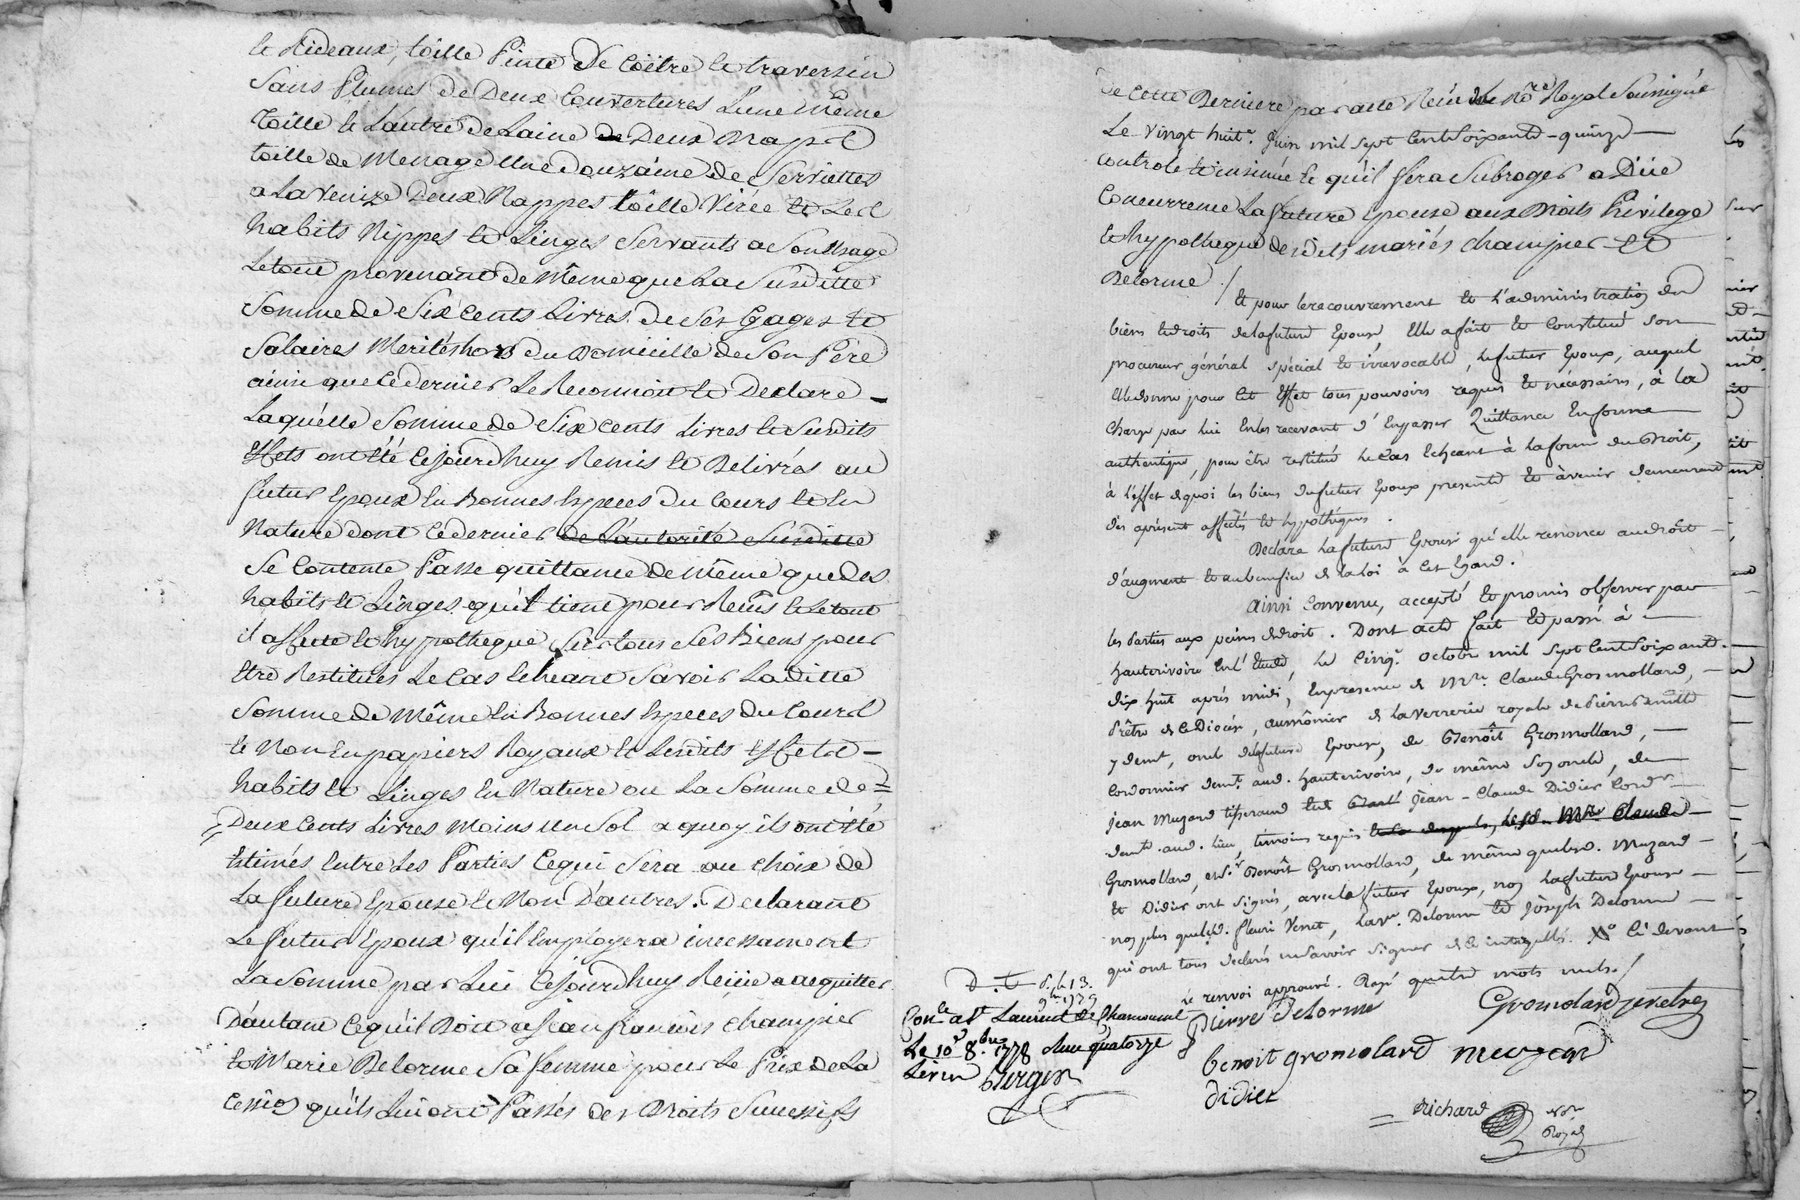 et Rideaux, toille Peinte de Coitre et traversin
Sans Plumes de Deux Couvertures L'une même
toille et L'autre de Laine de Deux Drap et
toille de Menage Une douzaine de Serviettes
a La Venize Deux Nappes toille Virée et Led
habits Nippes et Linges Servants a Son Usage
Le tout provenant de Même que La Susditte
Somme de Six Cents Livres de Ses Gages et
Salaires Merités hors du Domicille de Son Père
ainsi que Ce dernier Le Reconnoit et Declare
Laquelle Somme de Six cents Livres et Susdits
Effets ont été Cejourdhuy Remis et Delivrés au
futur Epoux En Bonnes Especes du Cours et En
Nature dont Ce dernier de L'autorité Susditte
Se Contente Passe quittance de Même que des
habits et Linges qu'il tient pour Reçus et Le tout
il affecte et hypotheque Sur tous Ses Biens pour
Etre Restitués Le Cas Echeant Savoir Laditte
Somme de Même En Bonnes Especes du Cours
et Non En papiers Royaux Et Lesdits Effets
habits et Linges En Nature ou La Somme de
Deux Cents Livres Moins Un Sol a quoy ils ont été
Estimés Entre Les Parties Ce qui Sera au Choix de
La future Epouse et Non D'autres. Declarant
Le futur Epoux qu'il Employera incessament
La Somme par Lui Cejourdhuy Reçüe a acquitter
D'autant Ce qu'il Doit a Jean françois Champier
et Marie Delorme Sa femme pour Le Prix de La
Cession qu'ils Lui ont Passés des Droits Successifs
de Cette Derniere par acte Reçu Nre Royal Soussigné
Le Vingt huit Juin mil Sept Cent Soixante-quinze
Controlé et insinué et qu'il fera Subroger a Düe
Concurrence La future Epouse aux Droits Privilege
et hypotheque desdits mariés Champier et
Delorme /
Et pour le recouvrement et L'administration des
biens et droits de la future Epouse, Elle a fait et Constitué son
procureur général spécial et irrevocable, Le futur Epoux, auquel
Elle donne pour cet Effet tous pouvoirs requis et nécessaires, à la
Charge par lui En les recevant d'En passer Quittance En forme
authentique, pour être restitué le Cas Echeant à la forme du Droit,
à l'effet de quoi les biens du futur Epoux presents et à venir demeurent
dès apresent affectés et hypothéqués.
Declare La future Epouse qu'elle renonce au droit
d'augment et au benefice de la Loi à Cet Egard.
Ainsi Convenu, accepté et promis observer par
les Parties aux peines de droit. Dont acte fait et passé à
hauterivoire En l'Etude, Le Cinq octobre mil Sept Cent Soixante
dix huit après midi, En presence de Mre Claude Grosmollard,
Prêtre de Ce Diocese, aumônier de la Verrerie royale de Pierre Benitte
y demt, oncle de la future Epouse, de Benoît Grosmollard,
Cordonnier demt aud. Hauterivoire, de même Son oncle, de
Jean Muzard tisserand et de Jean-Claude Didier Cord
demt aud. Lieu, temoins requis Mre Claude
Grosmollard, et Sr Benoît Grosmollard, de même que lesd. Muzard
et Didier ont Signés, avec le futur Epoux, non La future Epouse
non plus que led. fleuri Venet, La Ve Delorme et Joseph Delorme
qui ont tous declarés ne Savoir Signer de Ce interpellés. Ci devant
Le renvoi approuvé. Rayé quatre mots nuls. /
Pierre Delorme
Gromolard pretre
benoit gromolard muzard
didier
Richard
Nre
Royal
Conlé a St Laurent de Chamousset
Le 10 8bre 1778 Reçu quatorze
Livres Burgon